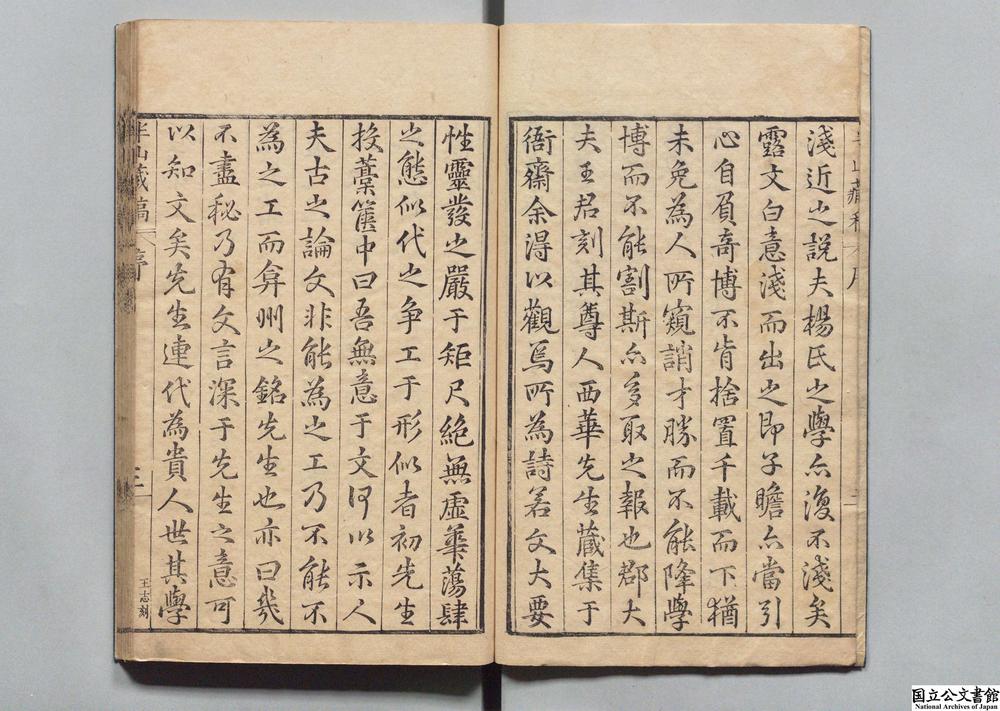 淺近之說夫楊氏之學亦復不淺矣
露文白意淺而出之即子瞻亦當引
心自負奇博不肯捨置千載而下猶
未免為人所窺誚才勝而不能降學
博而不能割斯亦多取之報也郡大
夫王君刻其尊人西華先生藏集于
衙齋余得以觀焉所為詩若文大要
性靈發之嚴于矩尺絕無虛華蕩肆
之態似代之爭工于形似者初先生
投藁篋中曰吾無意于文何以示人
夫古之論文非能為之工乃不能不
為之工而弇州之銘先生也亦曰幾
不盡秘乃有文言深于先生之意可
以知文矣先生連代為貴人世其學
半山藏稿
序
三
王志刻
国立公文書館
National Archives of Japan